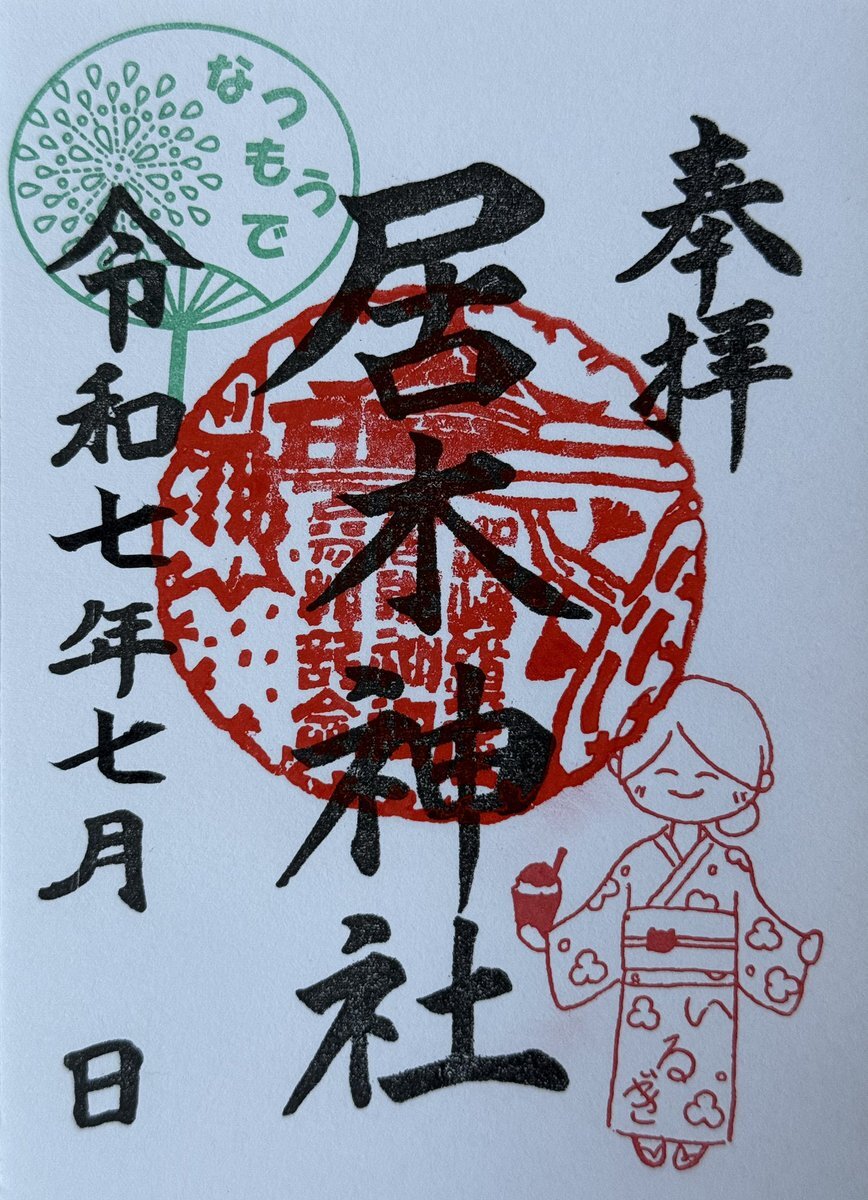 奉拝
居木神社
令和七年七月 日
なつ
もうで
いるぎ